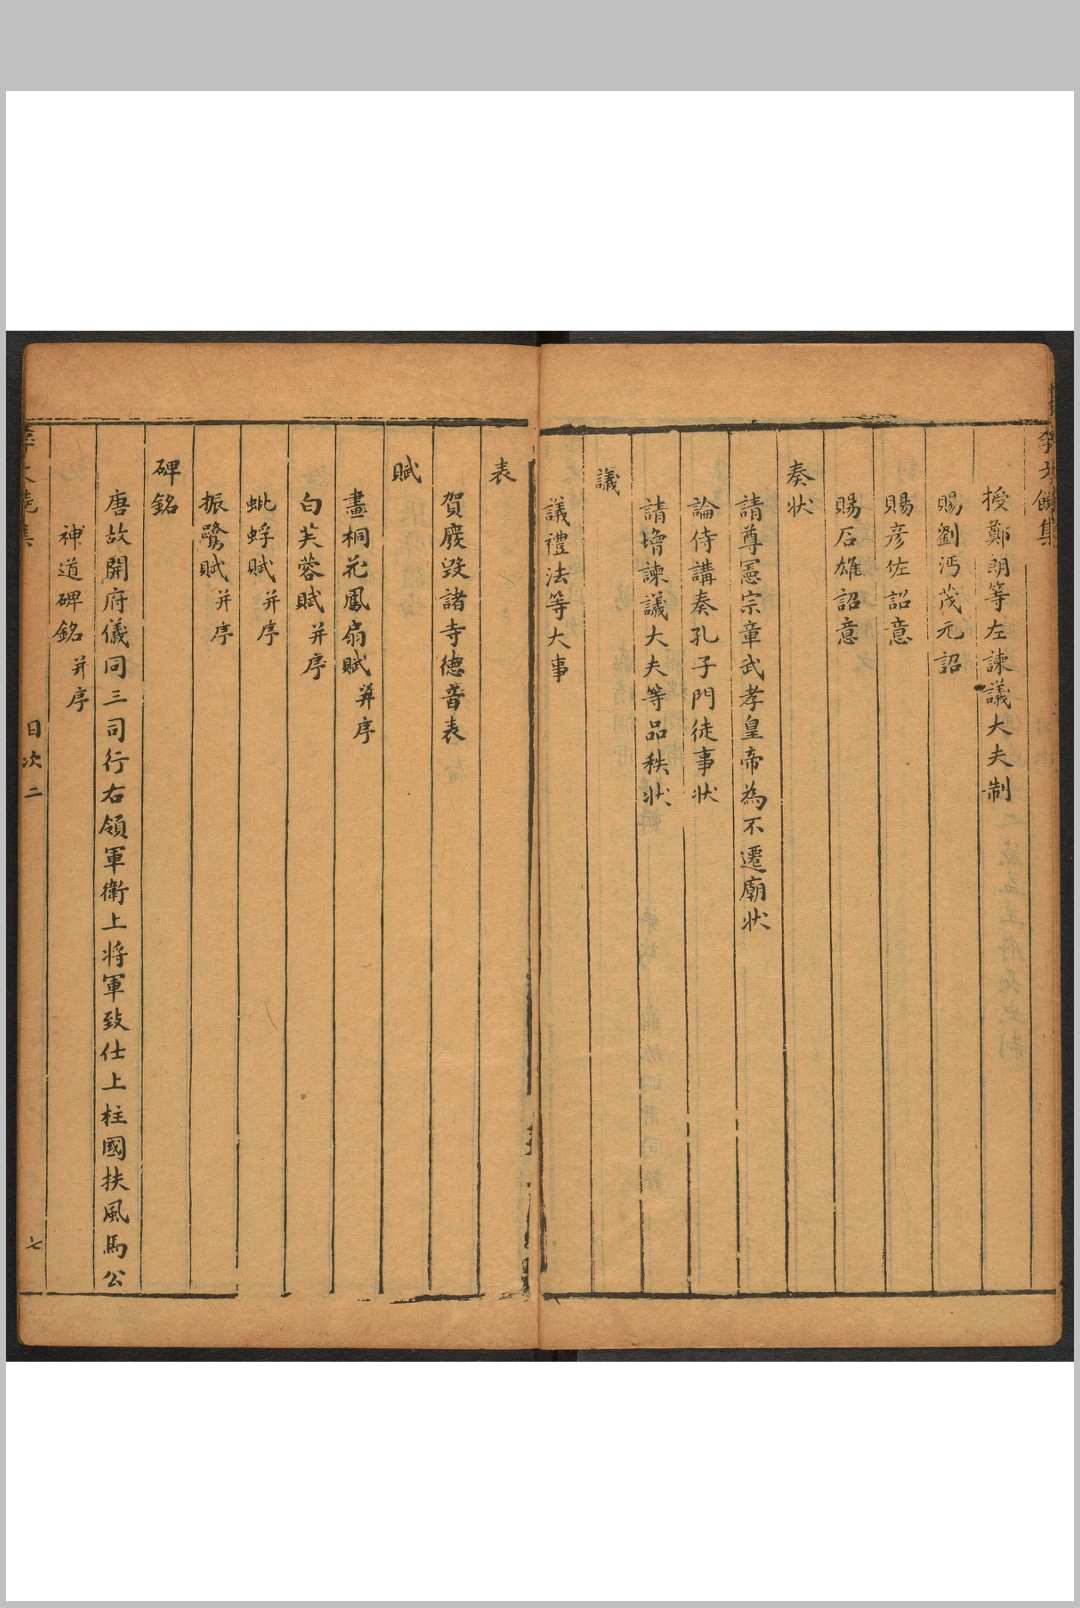 授鄭朗等左諫議大夫制
賜劉沔茂元詔
賜彦佐詔意
賜石雄詔意
奏状
請尊憲宗章武孝皇帝為不遷廟状
論侍講奏孔子門徒事状
請增諫議大夫等品秩状
議
議禮法等大事
表
賀廢毀諸寺德音表
賦
畫桐花鳳扇賦并序
白芙蓉賦并序
蚍蜉賦并序
振鷺賦并序
碑銘
唐故開府儀同三司行右領軍衛上將軍致仕上柱國扶風馬公
神道碑銘并序
目次二
七